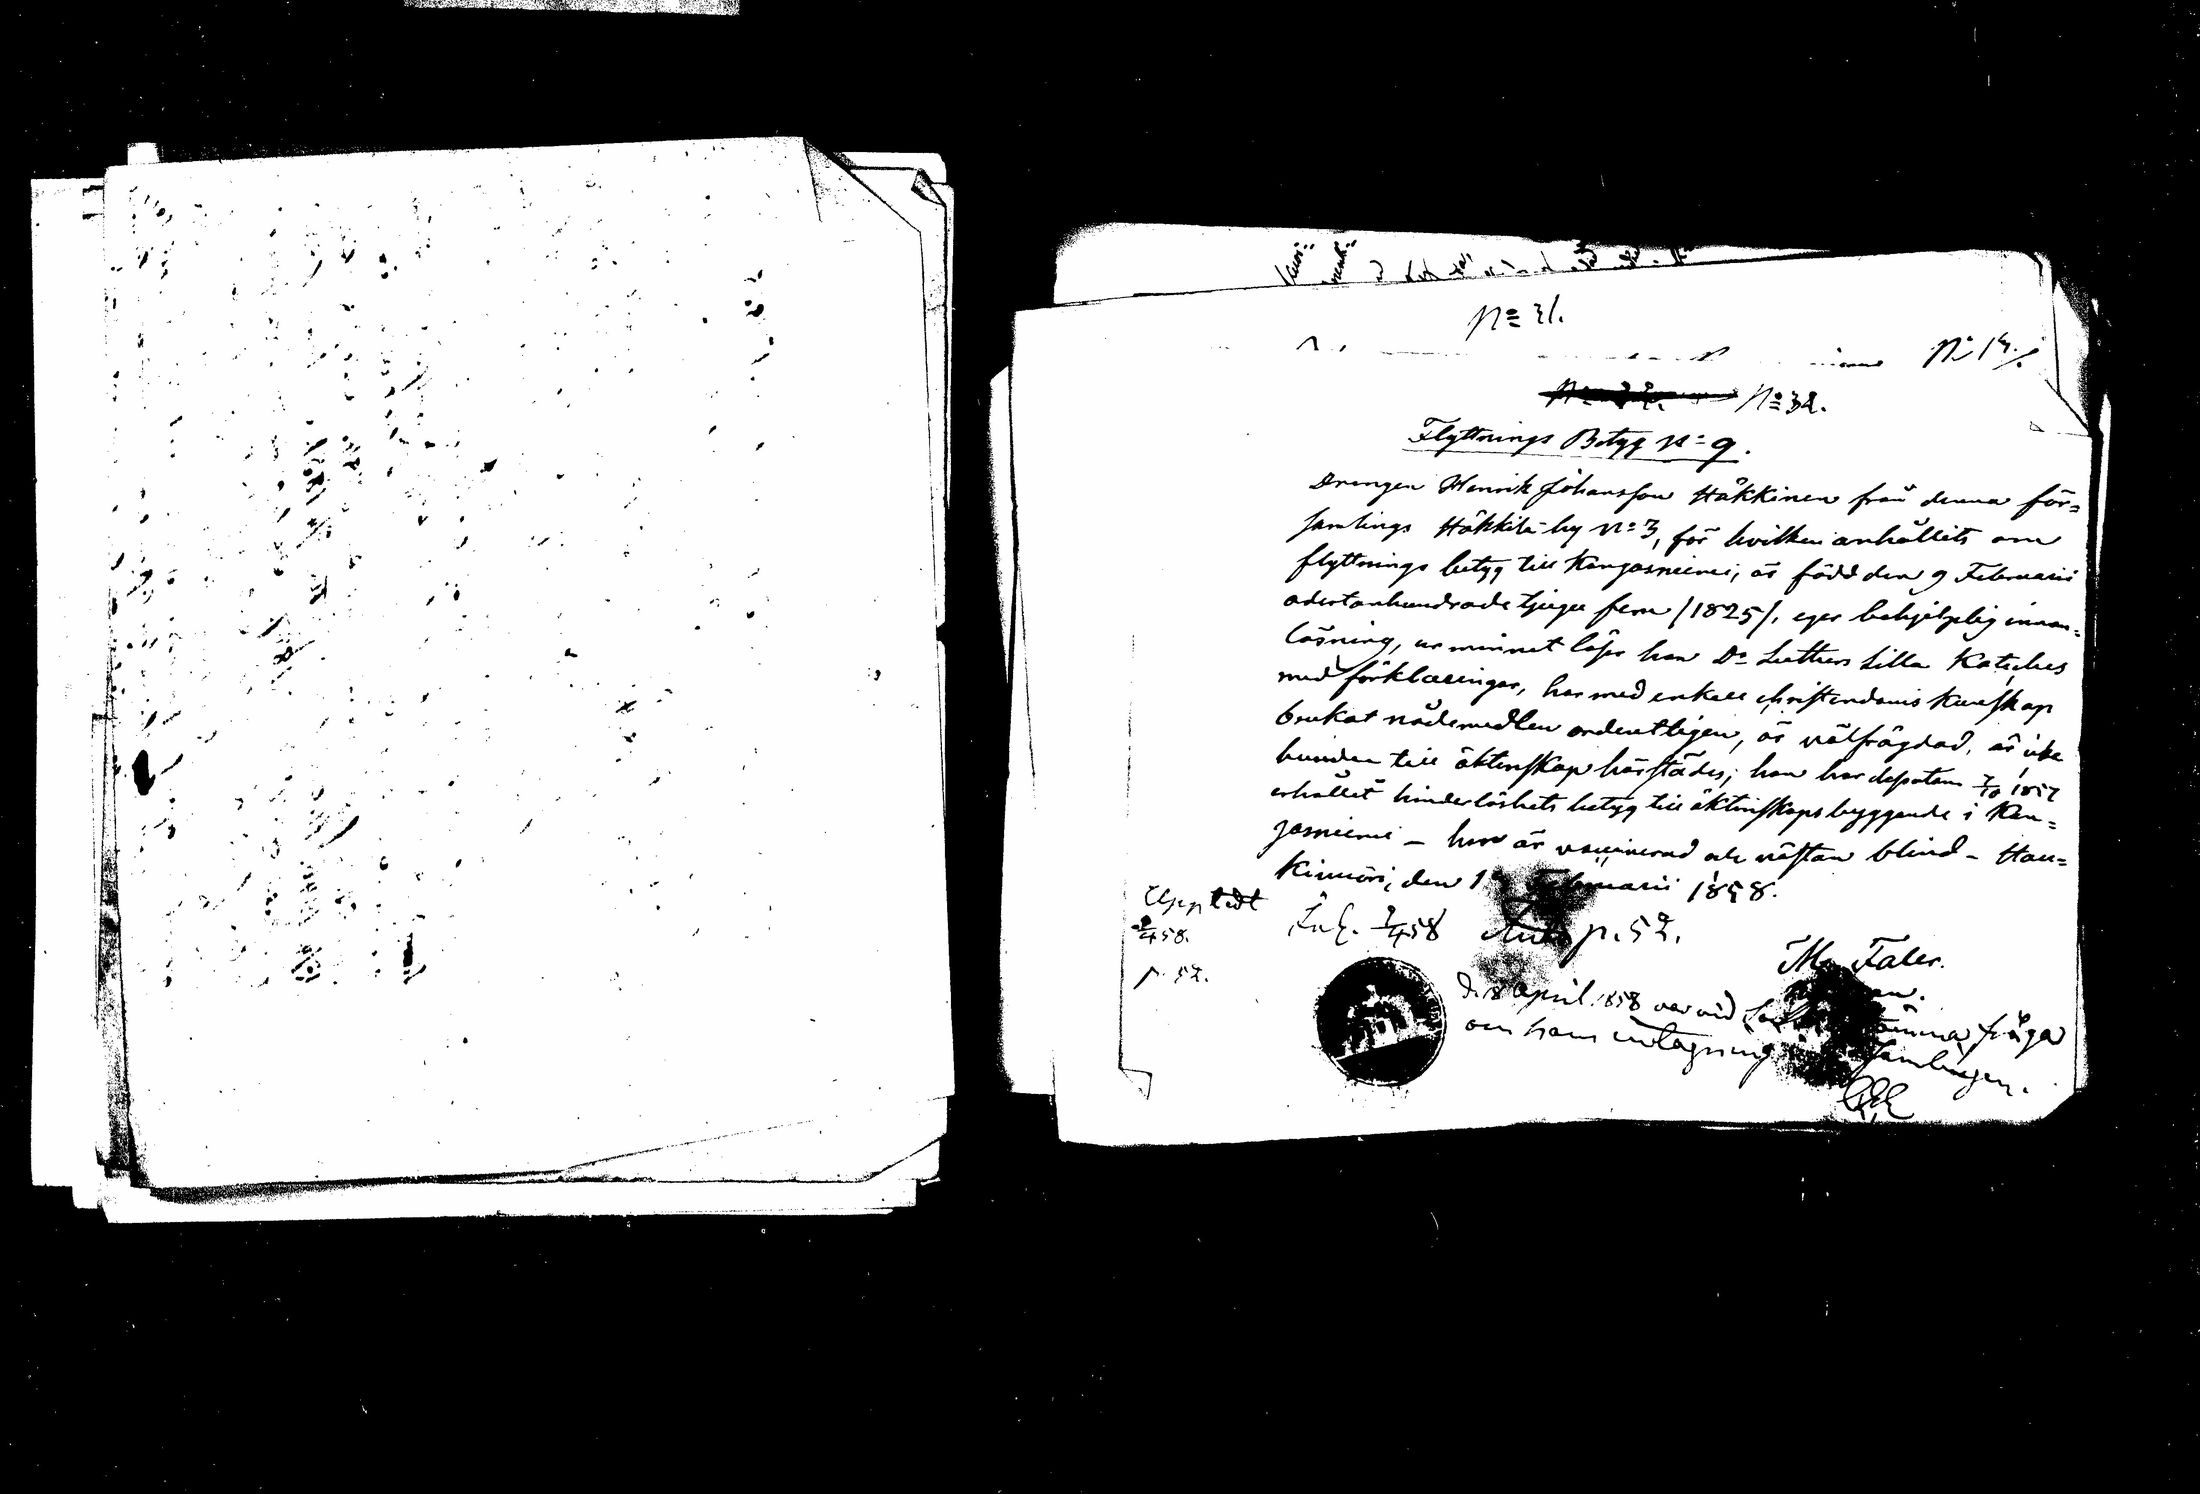 No 31.
No 14.
No 32.
Flyttnings Betyg No 9.
Drengen Henrik Johansson Häkkinen från denna för=
samlings Häkkilä by No 3, för hvilken anhållits om
flyttnings betyg till Kangasniemi, är född den 9 Februarii
adertonhundrade tjugu fem /1825/, eger behjelplig innan=
läsning, ur minnet läser han Dr Luthers Lilla Kateches
med förklaringar, har med enkel christendoms kunskap
brukat nådemedlen ordentligen, är välfrägdad, är icke
bunden till äktenskap härstädes; han har dessutom 7/10 1857
erhållit hinderlöshets betyg till äktenskaps byggande i Kan=
gasniemi – han är vaccinerad och nästan blind – Hau=
kivuori, den 1 Februarii 1858.
Uppledt
2/4 58.
p. 52.
Inl. 2/4 58 p. 52.
M. Faler.
D. 8 April 1858 var vid fråga
om hans intagning i församlingen.